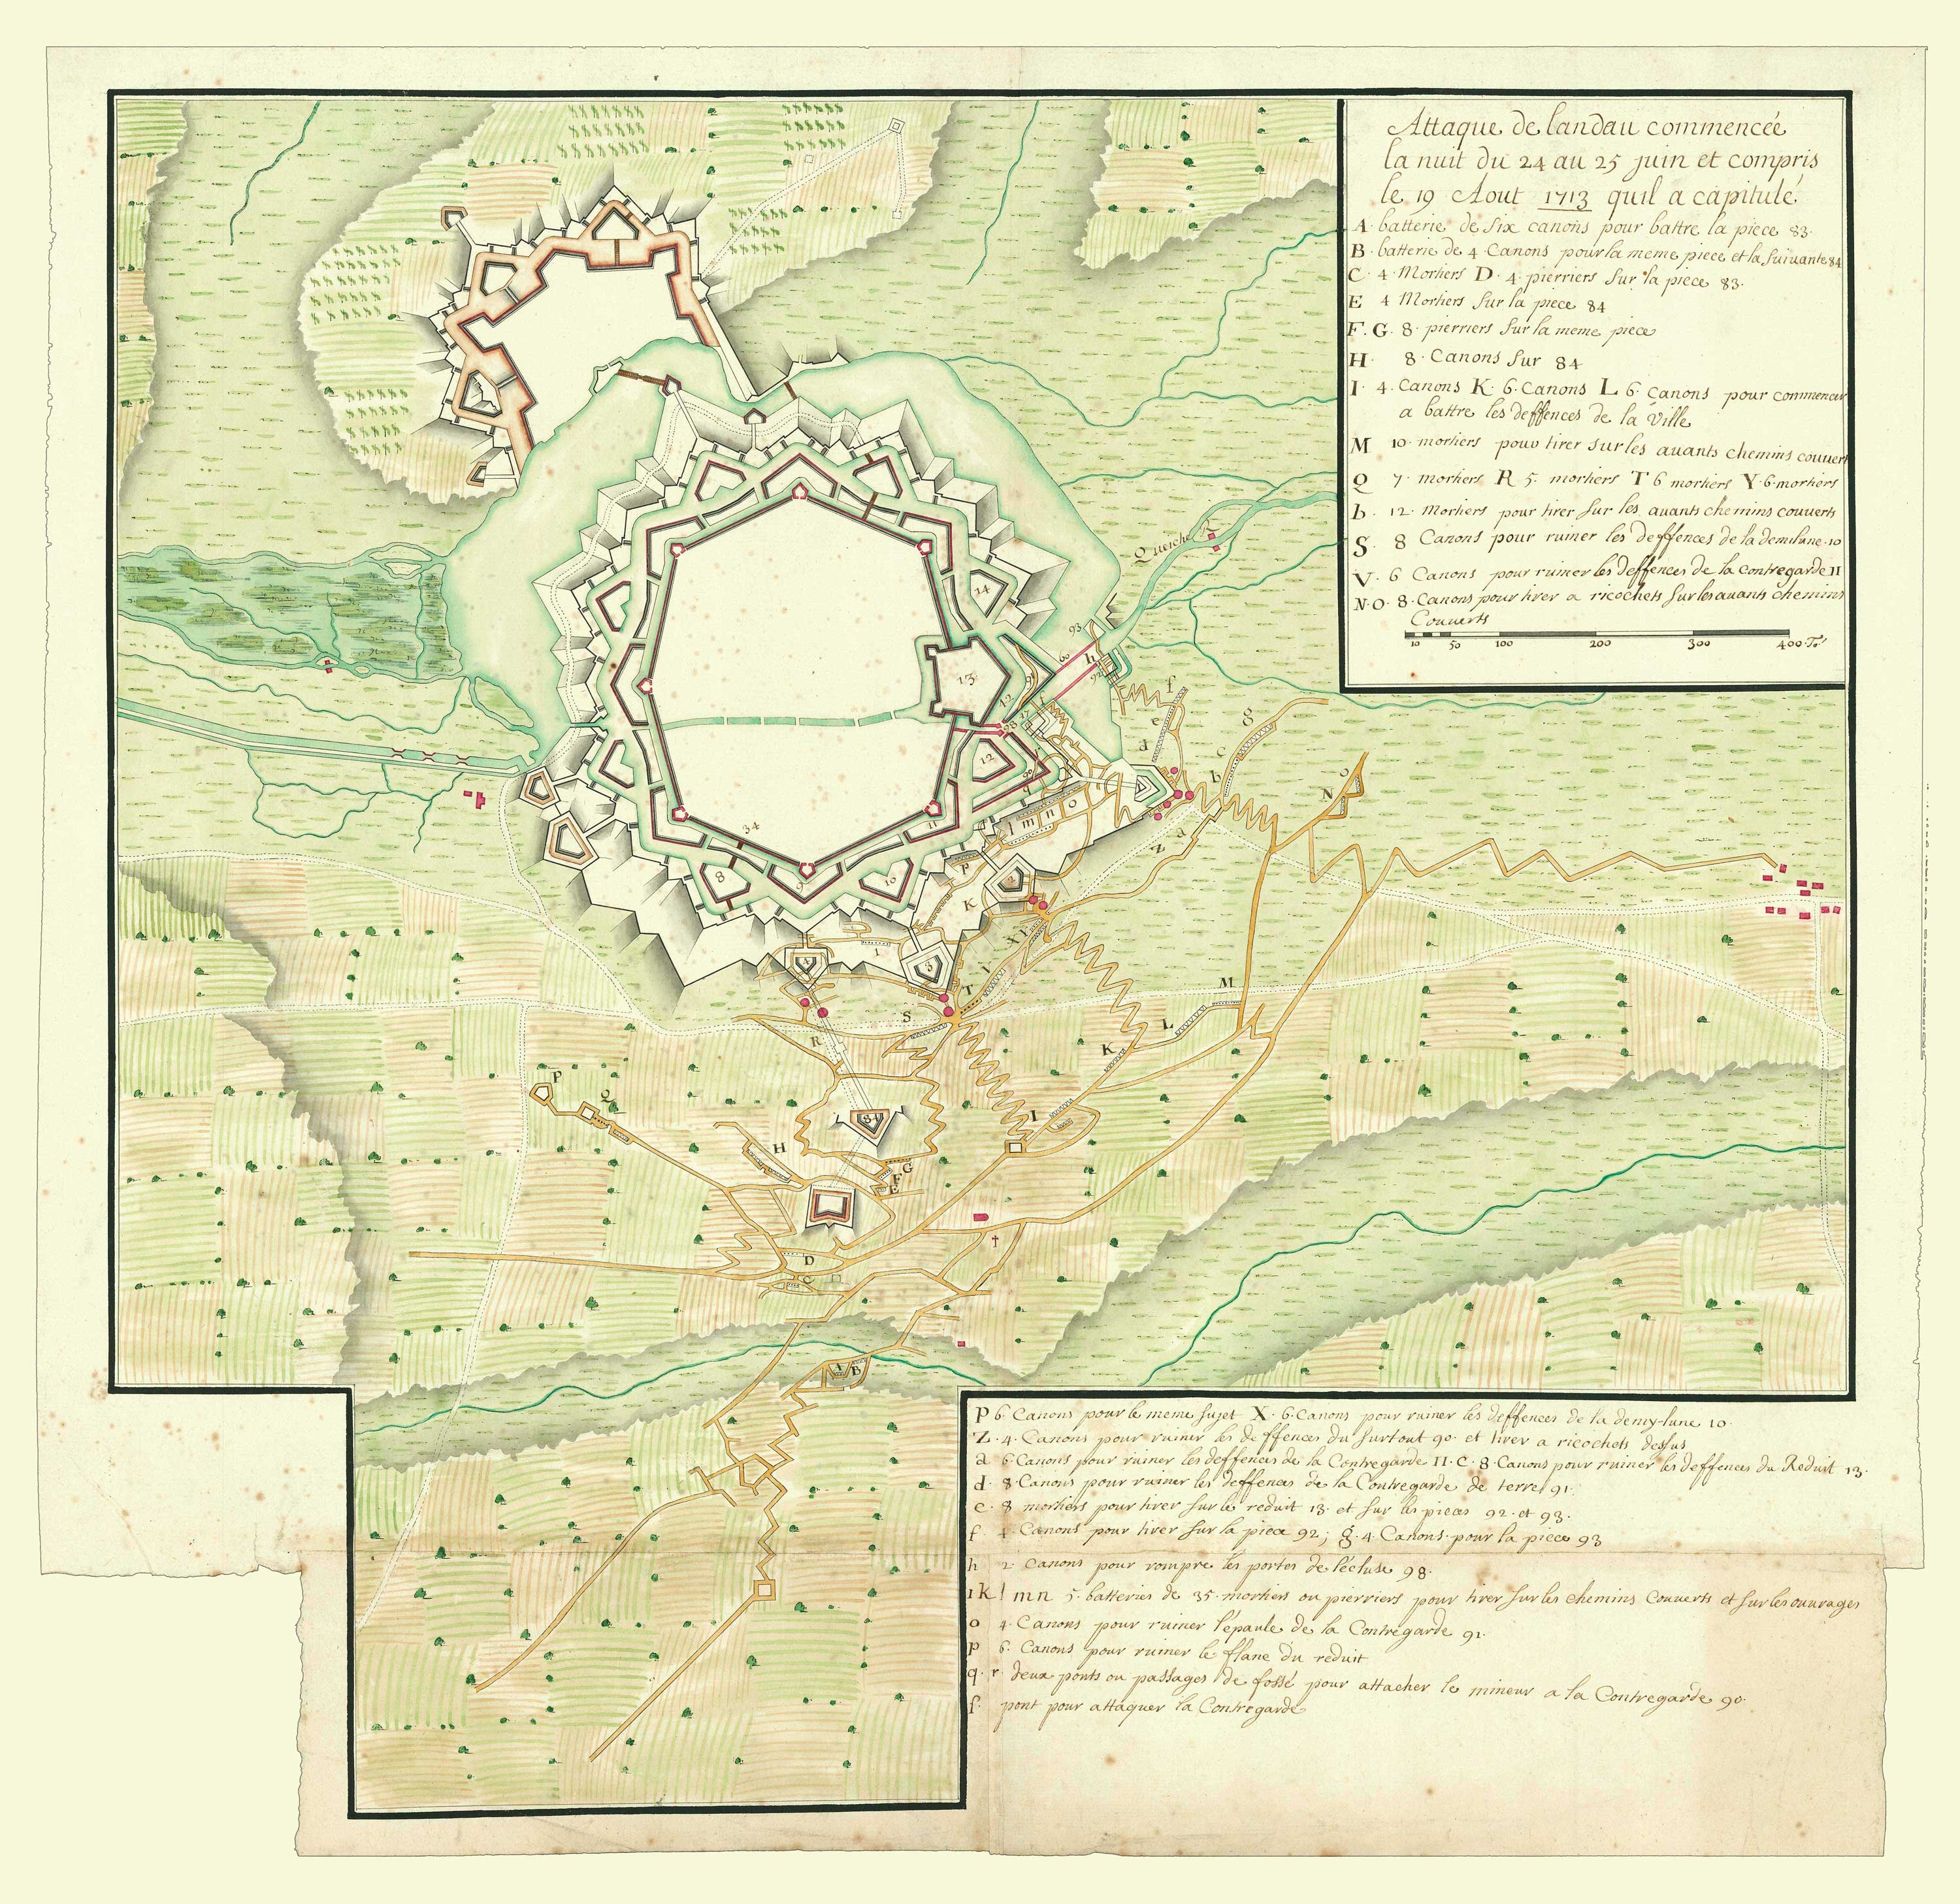 Attaque de landau commencée
la nuit du 24 au 25 juin et compris
le 19 Aout 1713 quil a capitulé
A batterie de six canons pour battre la piece 83.
B. batterie de 4 Canons pour la meme piece et la suivante 84
C 4 Mortiers D. 4. pierriers sur la piece 83.
E 4 Mortiers sur la piece 84
F. G. 8. pierriers sur la meme piece
H. 8. Canons sur 84
I. 4. Canons K. 6. Canons L 6. canons pour commencer
a battre les deffences de la Ville
M 10. mortiers pour tirer sur les avants chemins couvert
Q 7. mortiers R 5. mortiers T 6 mortiers Y. 6. mortiers
b. 12. Mortiers pour tirer sur les avants chemins couverts
S. 8 Canons pour ruiner les deffences de la demilune 10
V. 6 Canons pour ruiner les deffences de la contregarde 11
N. O. 8. Canons pour tirer a ricochets sur les avants chemins
Couverts
10 50 100 200 300 400 T.
Queiche
14
93
h
92
13
12
f
e
d
g
c
b
N
o
a
Z
l m n o
p
K
11
34
8
9
10
2
3
4
1
X Y
T
S
R
M
L
K
I
P
Q
84
H
G
F
E
D
C
A B
P 6. Canons pour le meme sujet X. 6. Canons pour ruiner les deffences de la demy-lune 10.
Z. 4. Canons pour ruiner les deffences du surtout 90. et tirer a ricochets dessus
a 6. Canons pour ruiner les deffences de la Contregarde 11. c. 8. Canons pour ruiner les deffences du Reduit 13.
d. 8. Canons pour ruiner les deffences de la Contregarde de terre 91.
e. 8 mortiers pour tirer sur le reduit 13. et sur les pieces 92. et 93.
f. 4. Canons pour tirer sur la piece 92; g. 4. Canons. pour la piece 93
h 2. Canons pour rompre les portes de l'écluse 98.
i k l mn 5. batteries de 35. mortiers ou pierriers pour tirer sur les chemins Couverts et sur les ouvrages
o 4. Canons pour ruiner l'épaule de la Contregarde 91.
p 6. Canons pour ruiner le flanc du réduit
q. r. deux ponts ou passages de fossé pour attacher le mineur a la Contregarde 90.
ſ. pont pour attaquer la Contregarde